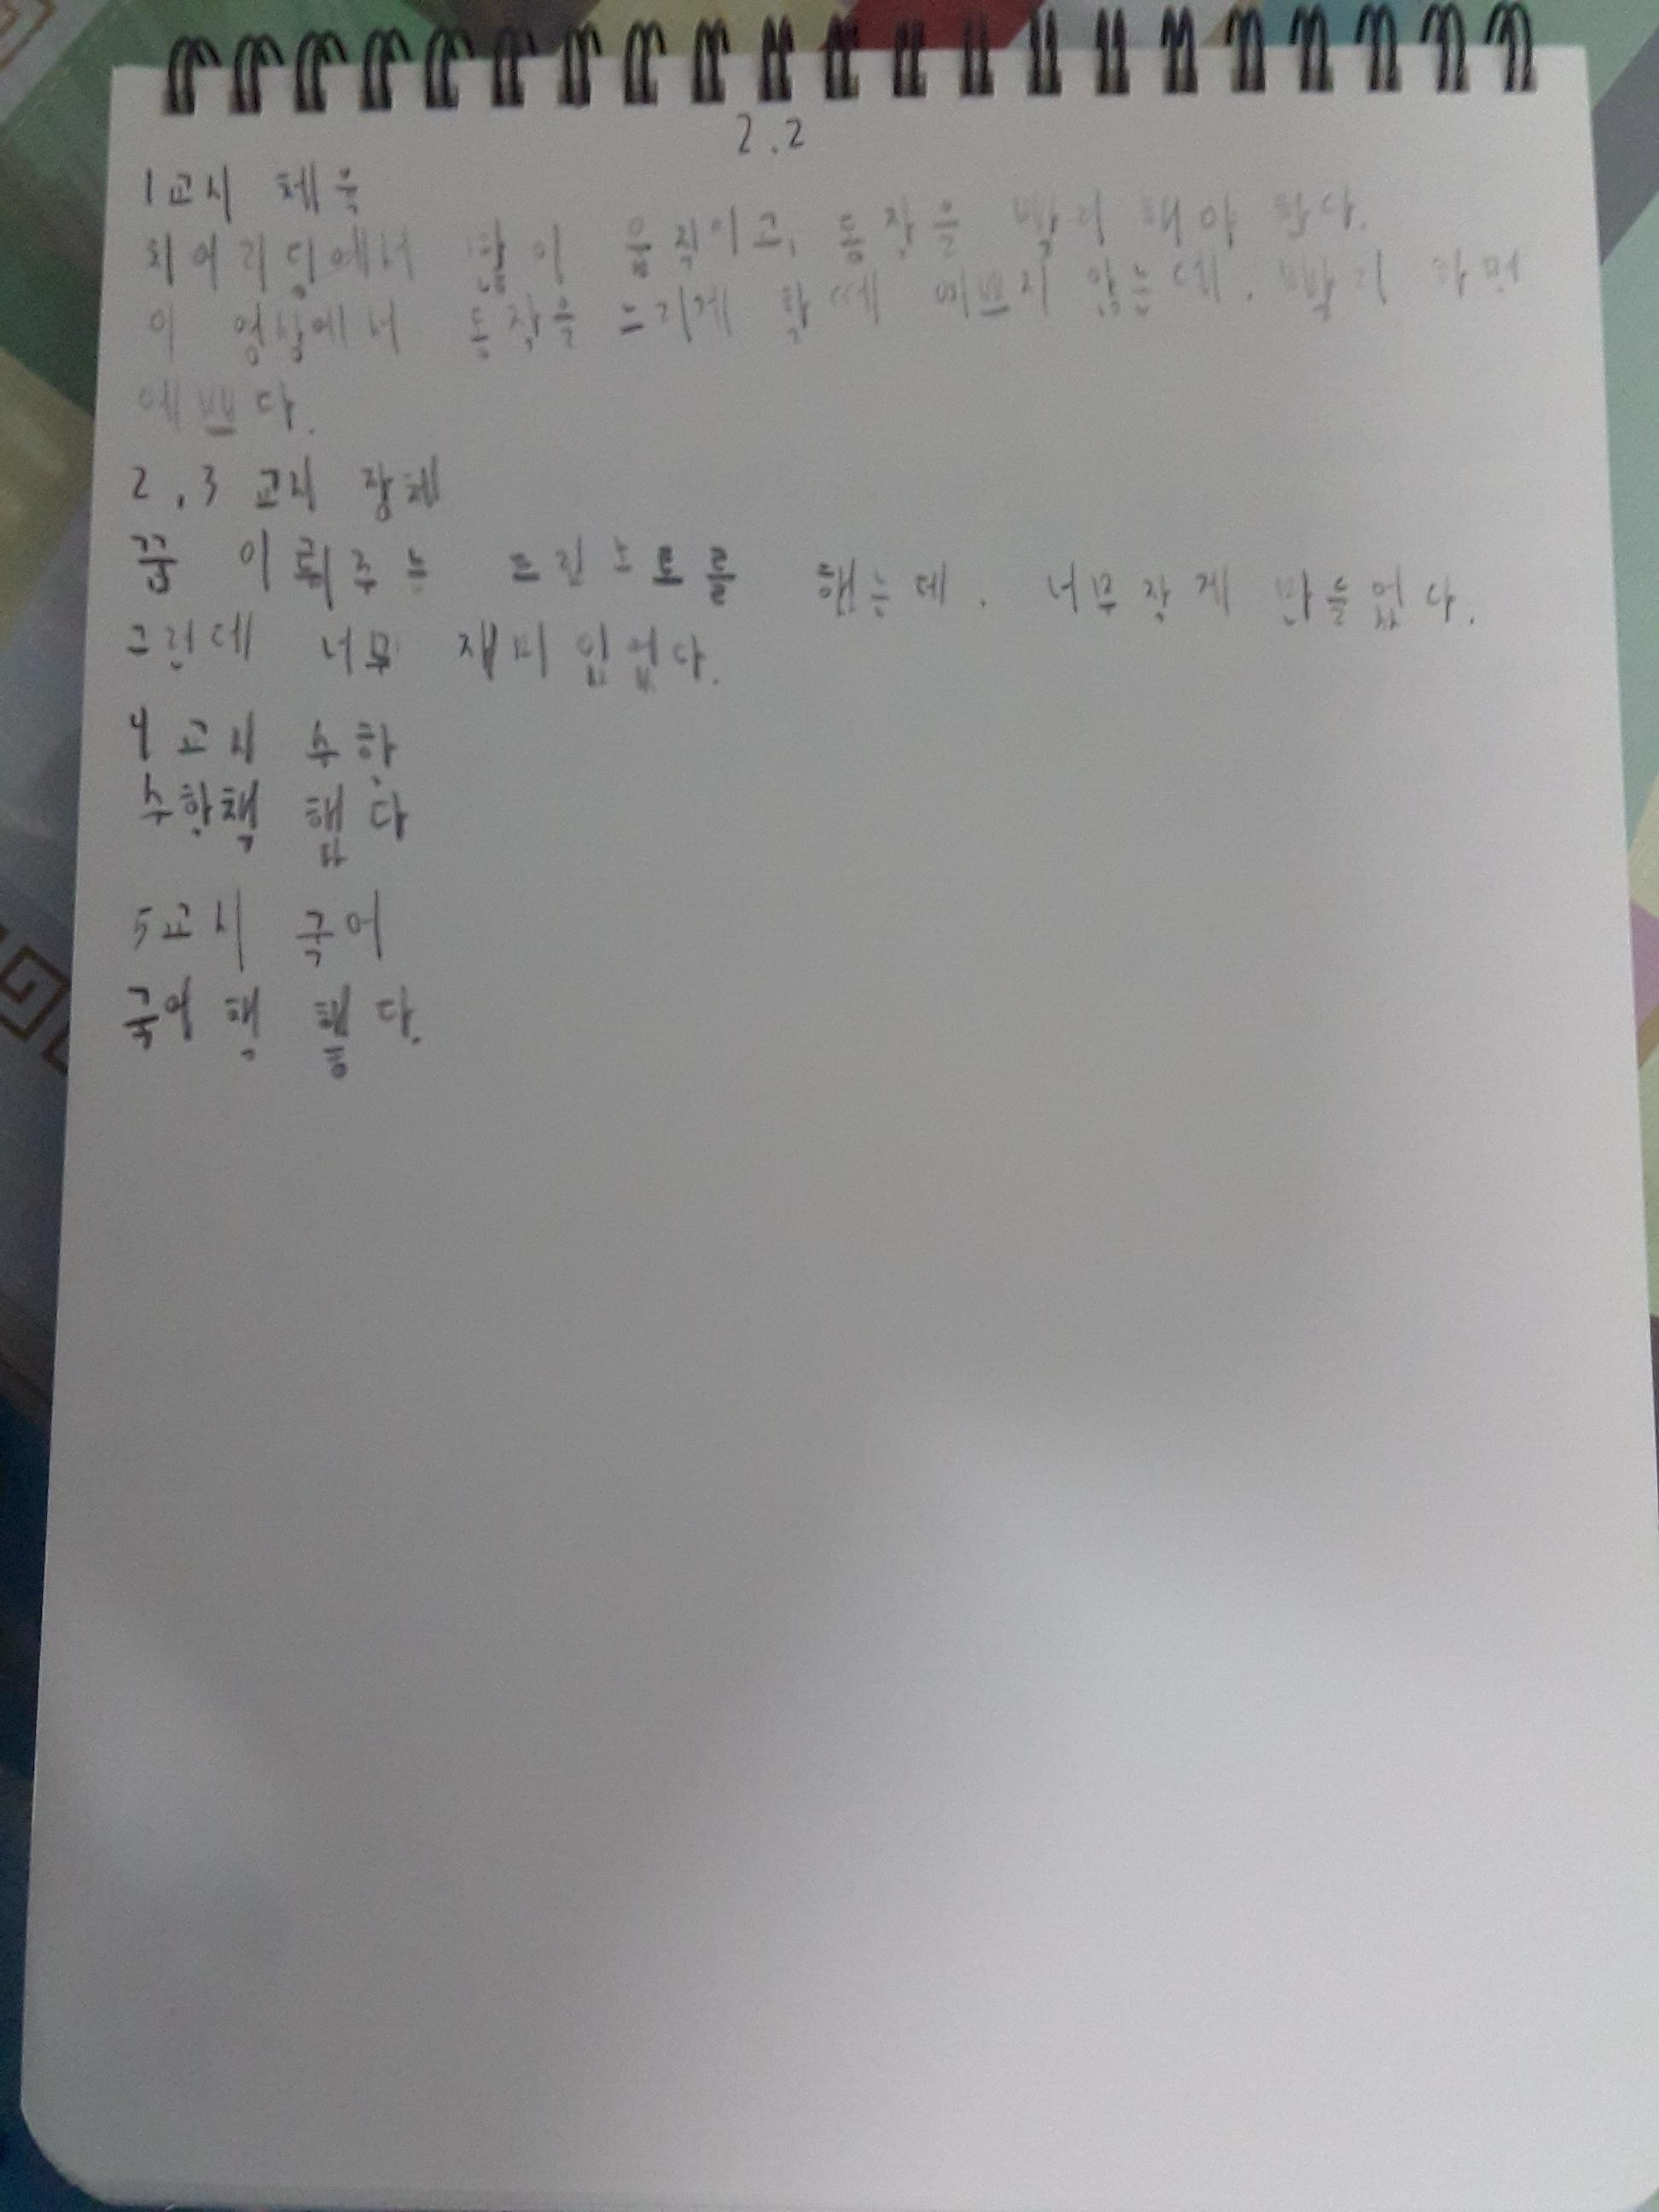 2.2
1교시 체육
치어리딩에서 많이 움직이고, 동작을 빨리 해야 한다.
이 영상에서 동작을 느리게 할때 예쁘지 않는데. 빨리 하면
예쁘다.
2,3교시 창체
꿈 이뤄주는 드림노트를 했는데. 너무 작게 만들었다.
그런데 너무 재미있었다.
4교시 수학
수학책 했다
5교시 국어
국어책 했다.